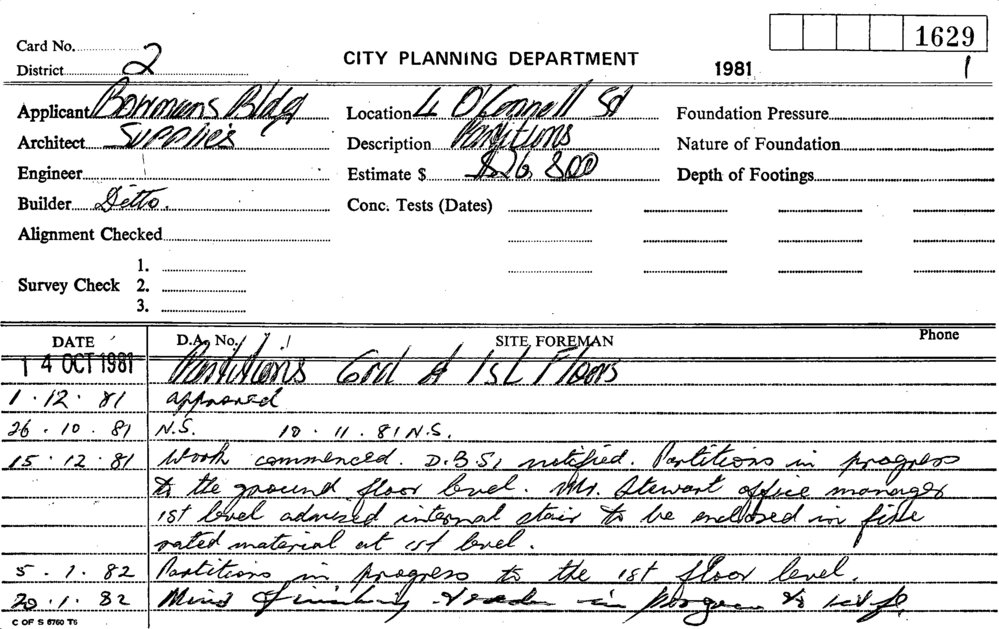 1629
Card No. 2
District
CITY PLANNING DEPARTMENT
1981
1
Applicant Bowmans Bldg
Location 4 O'Connell St
Foundation Pressure
Architect Supplies
Description Partitions
Nature of Foundation
Engineer
Estimate $ $26 800
Depth of Footings
Builder Ditto.
Conc. Tests (Dates)
Alignment Checked
Survey Check
1.
2.
3.
DATE
D.A. No.
SITE FOREMAN
Phone
14 OCT 1981 Partitions Grd & 1st Floors
1.12.81 approved
26.10.81 N.S. 10.11.81 N.S.
15.12.81 Work commenced. D.B.S. notified. Partitions in progress
to the ground floor level. Mr. Stewart office manager
1st level advised internal stair to be enclosed in fire
rated material at 1st level.
5.1.82 Partitions in progress to the 1st floor level.
20.1.82 Minor finishing trades in progress to
C OF S 6760 T6